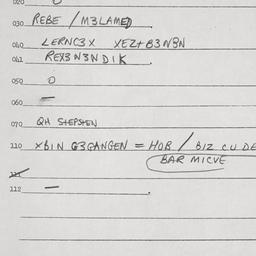 020 0
030 REBE / M3LAMED
040 LERNC3X XEZ+B3N3N
041 REX3N3NDIK
050 0
060 —
070 QH STEPSTEN
110 XBIN G3GANGEN = HOB / BIZ CU DE
BAR MICVE
111
112 —